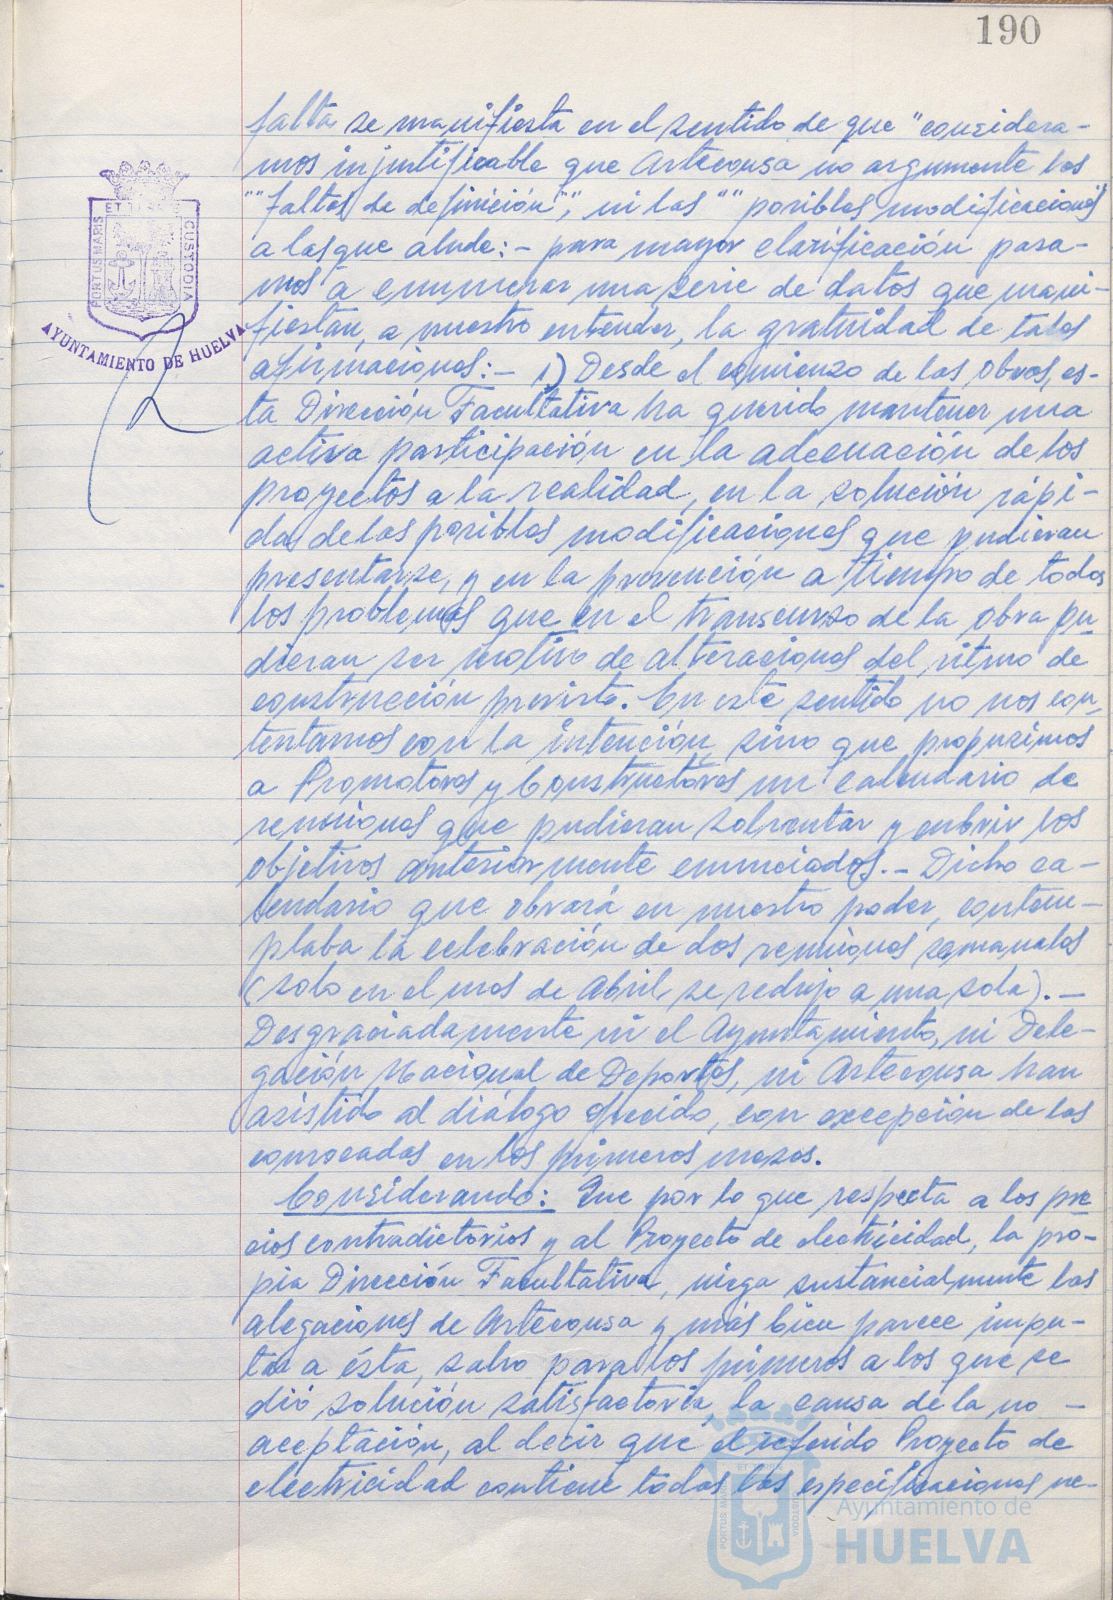 190
falta se manifiesta en el sentido de que "considera-
mos injustificable que Artecousa no argumente las
""faltas de definición", ni las "" posibles modificaciones"
a las que alude:- para mayor clarificación pasa-
mos a enumerar una serie de datos que mani-
fiestan, a nuestro entender, la gratuidad de tales
afirmaciones:- 1) Desde el comienzo de las obras, es-
ta Dirección Facultativa ha querido mantener una
activa participación en la adecuación de los
proyectos a la realidad, en la solución rápi-
da de las posibles modificaciones que pudieran
presentarse, y en la prevención a tiempo de todos
los problemas que en el transcurso de la obra pu-
dieran ser motivo de alteraciones del ritmo de
construcción previsto. En este sentido no nos con-
tentamos con la intención, sino que propusimos
a Promotores y Constructores un calendario de
reuniones que pudieran solventar y cubrir los
objetivos anteriormente enunciados.- Dicho ca-
lendario que obrará en nuestro poder, contem-
plaba la celebración de dos reuniones semanales
(solo en el mes de Abril, se redujo a una sola).-
Desgraciadamente ni el Ayuntamiento, ni Dele-
gación Nacional de Deportes, ni Artecousa han
asistido al diálogo ofrecido, con excepción de las
convocadas en los primeros meses.
Considerando: Que por lo que respecta a los pre
cios contradictorios y al Proyecto de electricidad, la pro-
pia Dirección Facultativa, niega sustancialmente las
alegaciones de Artecousa y más bien parece impu-
tar a ésta, salvo para los primeros a los que se
dió solución satisfactoria, la causa de la no -
aceptación, al decir que el referido Proyecto de
electricidad contiene todas las especificaciones ne-
PORTUS MARIS ET TERRE CUSTODIA
AYUNTAMIENTO DE HUELVA
Ayuntamiento de
HUELVA